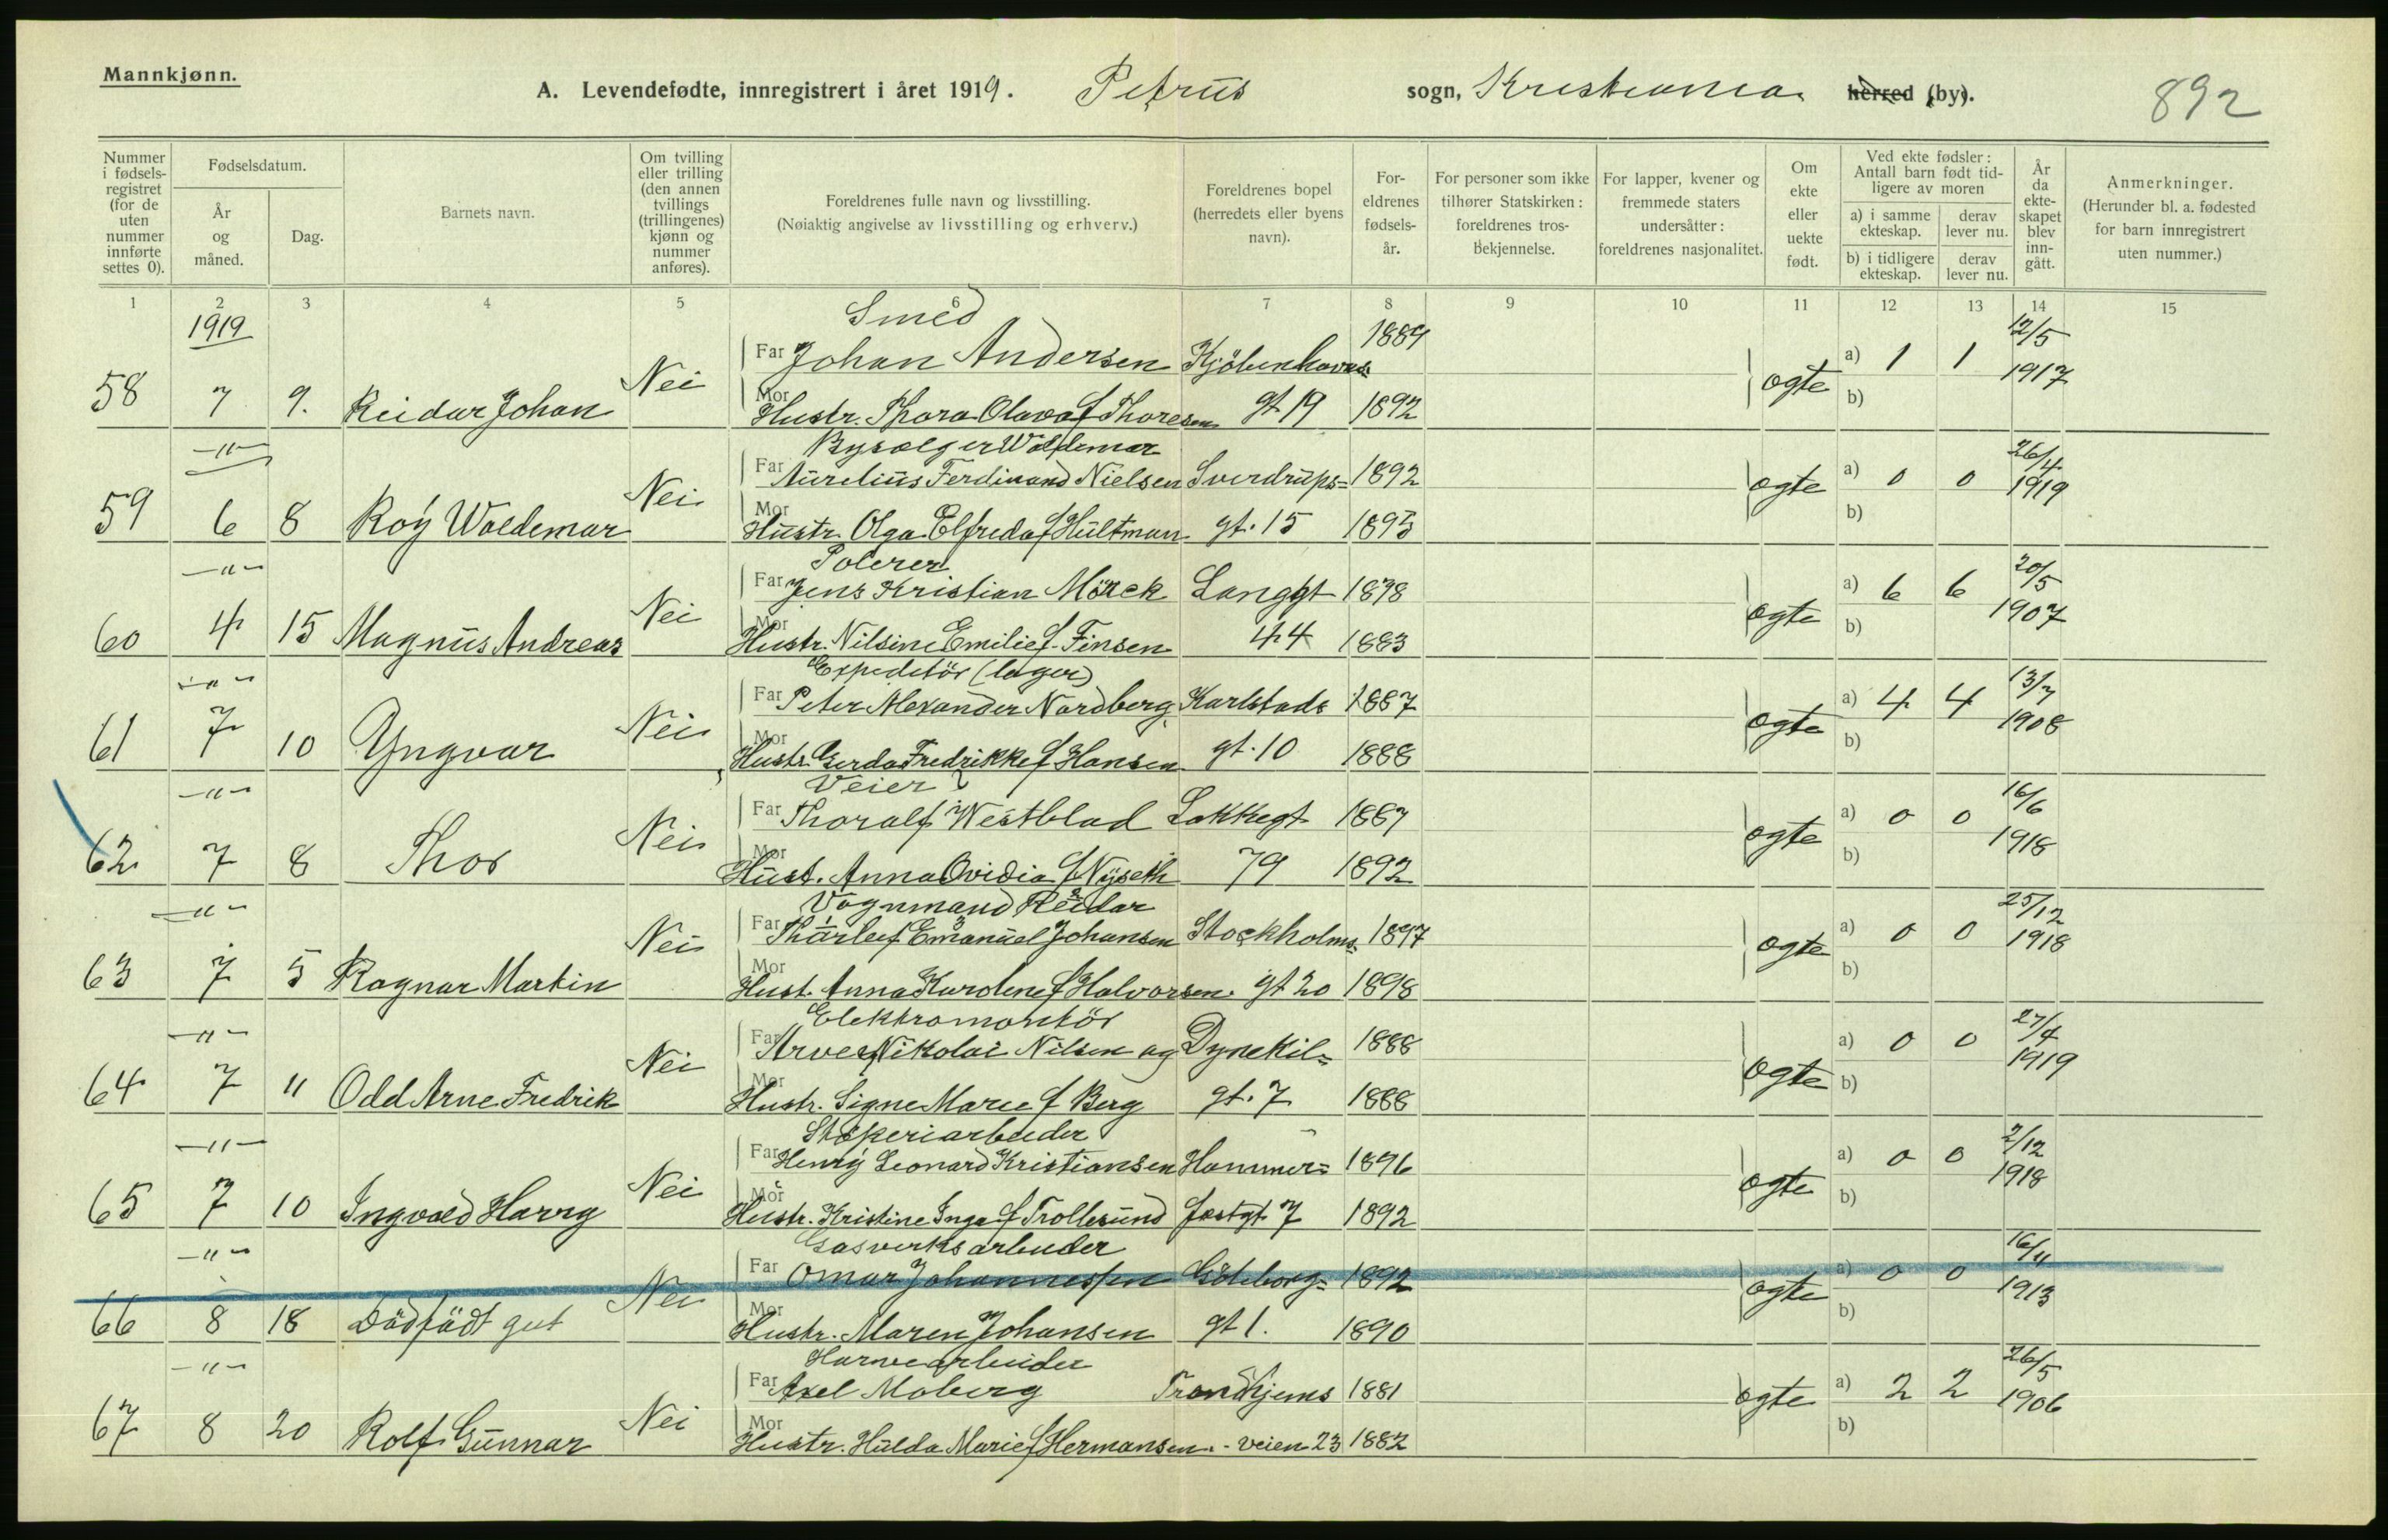 Mannkjønn.
A. Levendefødte, innregistrert i året 1919. Petrus sogn, Kristiania herred (by).
892
Nummer i fødsels- registret (for de uten nummer innførte settes 0).
Fødselsdatum.
År og måned.
Dag.
Barnets navn.
Om tvilling eller trilling (den annen tvillings (trillingenes) kjønn og nummer anføres).
Foreldrenes fulle navn og livsstilling.
(Nøiaktig angivelse av livsstilling og erhverv.)
Foreldrenes bopel (herredets eller byens navn).
For- eldrenes fødsels- år.
For personer som ikke tilhører Statskirken: foreldrenes tros- bekjennelse.
For lapper, kvener og fremmede staters undersåtter: foreldrenes nasjonalitet.
Om ekte eller uekte født.
Ved ekte fødsler: Antall barn født tid- ligere av moren
a) i samme ekteskap. derav lever nu.
b) i tidligere ekteskap. derav lever nu.
År da ekte- skapet blev inn- gått.
Anmerkninger.
(Herunder bl. a. fødested for barn innregistrert uten nummer.)
1 2 3 4 5 6 7 8 9 10 11 12 13 14 15
1919 Smed 12/5
Far Johan Andersen Kjöbenhavns 1889 a) 1 1 1917
58 7 9. Reidar Johan Nei Mor Hustr. Thora Olava f Thoresen gt 19 1892 ogte b)
-"- Bysælger Waldemar 26/4
Far Aurelius Ferdinand Nielsen Sverdrups- 1892 a) 0 0 1919
59 6 8 Roy Waldemar Nei Mor Hustr. Olga Elfreda f Hultman gt. 15 1895 ogte b)
-"- Polerer 20/5
Far Jens Kristian Mörck Langgt 1878 a) 6 6 1907
60 4 15 Magnus Andreas Nei Mor Hustr. Nilsine Emilie f. Finsen 44 1883 ogte b)
-"- Expeditör (lager) 13/7
Far Peter Alexander Nordberg Karlstads 1887 a) 4 4 1908
61 7 10 Yngvar Nei Mor Hustr. Gerda Fredrikke f Hansen gt. 10 1888 ogte b)
-"- Veier 16/6
Far Thoralf Westblad Lakkegt 1887 a) 0 0 1918
62 7 8 Thor Nei Mor Hust. Anna Ovidia f Nyseth 79 1892 ogte b)
-"- Vognmand Reidar 25/12
Far Thorleif Emanuel Johansen Stockholms- 1897 a) 0 0 1918
63 7 5 Ragnar Martin Nei Mor Hust. Anna Karoline f Halvorsen. gt 20 1898 ogte b)
-"- Elektromontör 27/4
Far Arve Nikolai Nilsen og Dynekil- 1888 a) 0 0 1919
64 7 11 Odd Arne Fredrik Nei Mor Hustr. Signe Marie f Berg gt. 7 1888 ogte b)
-"- Støperiarbeider 2/12
Far Henry Leonard Kristiansen Hammer- 1896 a) 0 0 1918
65 7 10 Ingvald Harry Nei Mor Hustr. Kristine Inga f Trollesund fastgt 7 1892 ogte b)
-"- Gasverksarbeider 16/11
Far Omar Johannesen Göteborg- 1892 a) 0 0 1913
66 8 18 Dödfödt gut Nei Mor Hustr. Maren Johansen gt 1. 1890 ogte b)
-"- Havnearbeider 26/5
Far Axel Moberg Trondhjems 1881 a) 2 2 1906
67 8 20 Rolf Gunnar Nei Mor Hustr. Hulda Marie f Hermansen. -veien 23 1882 ogte b)